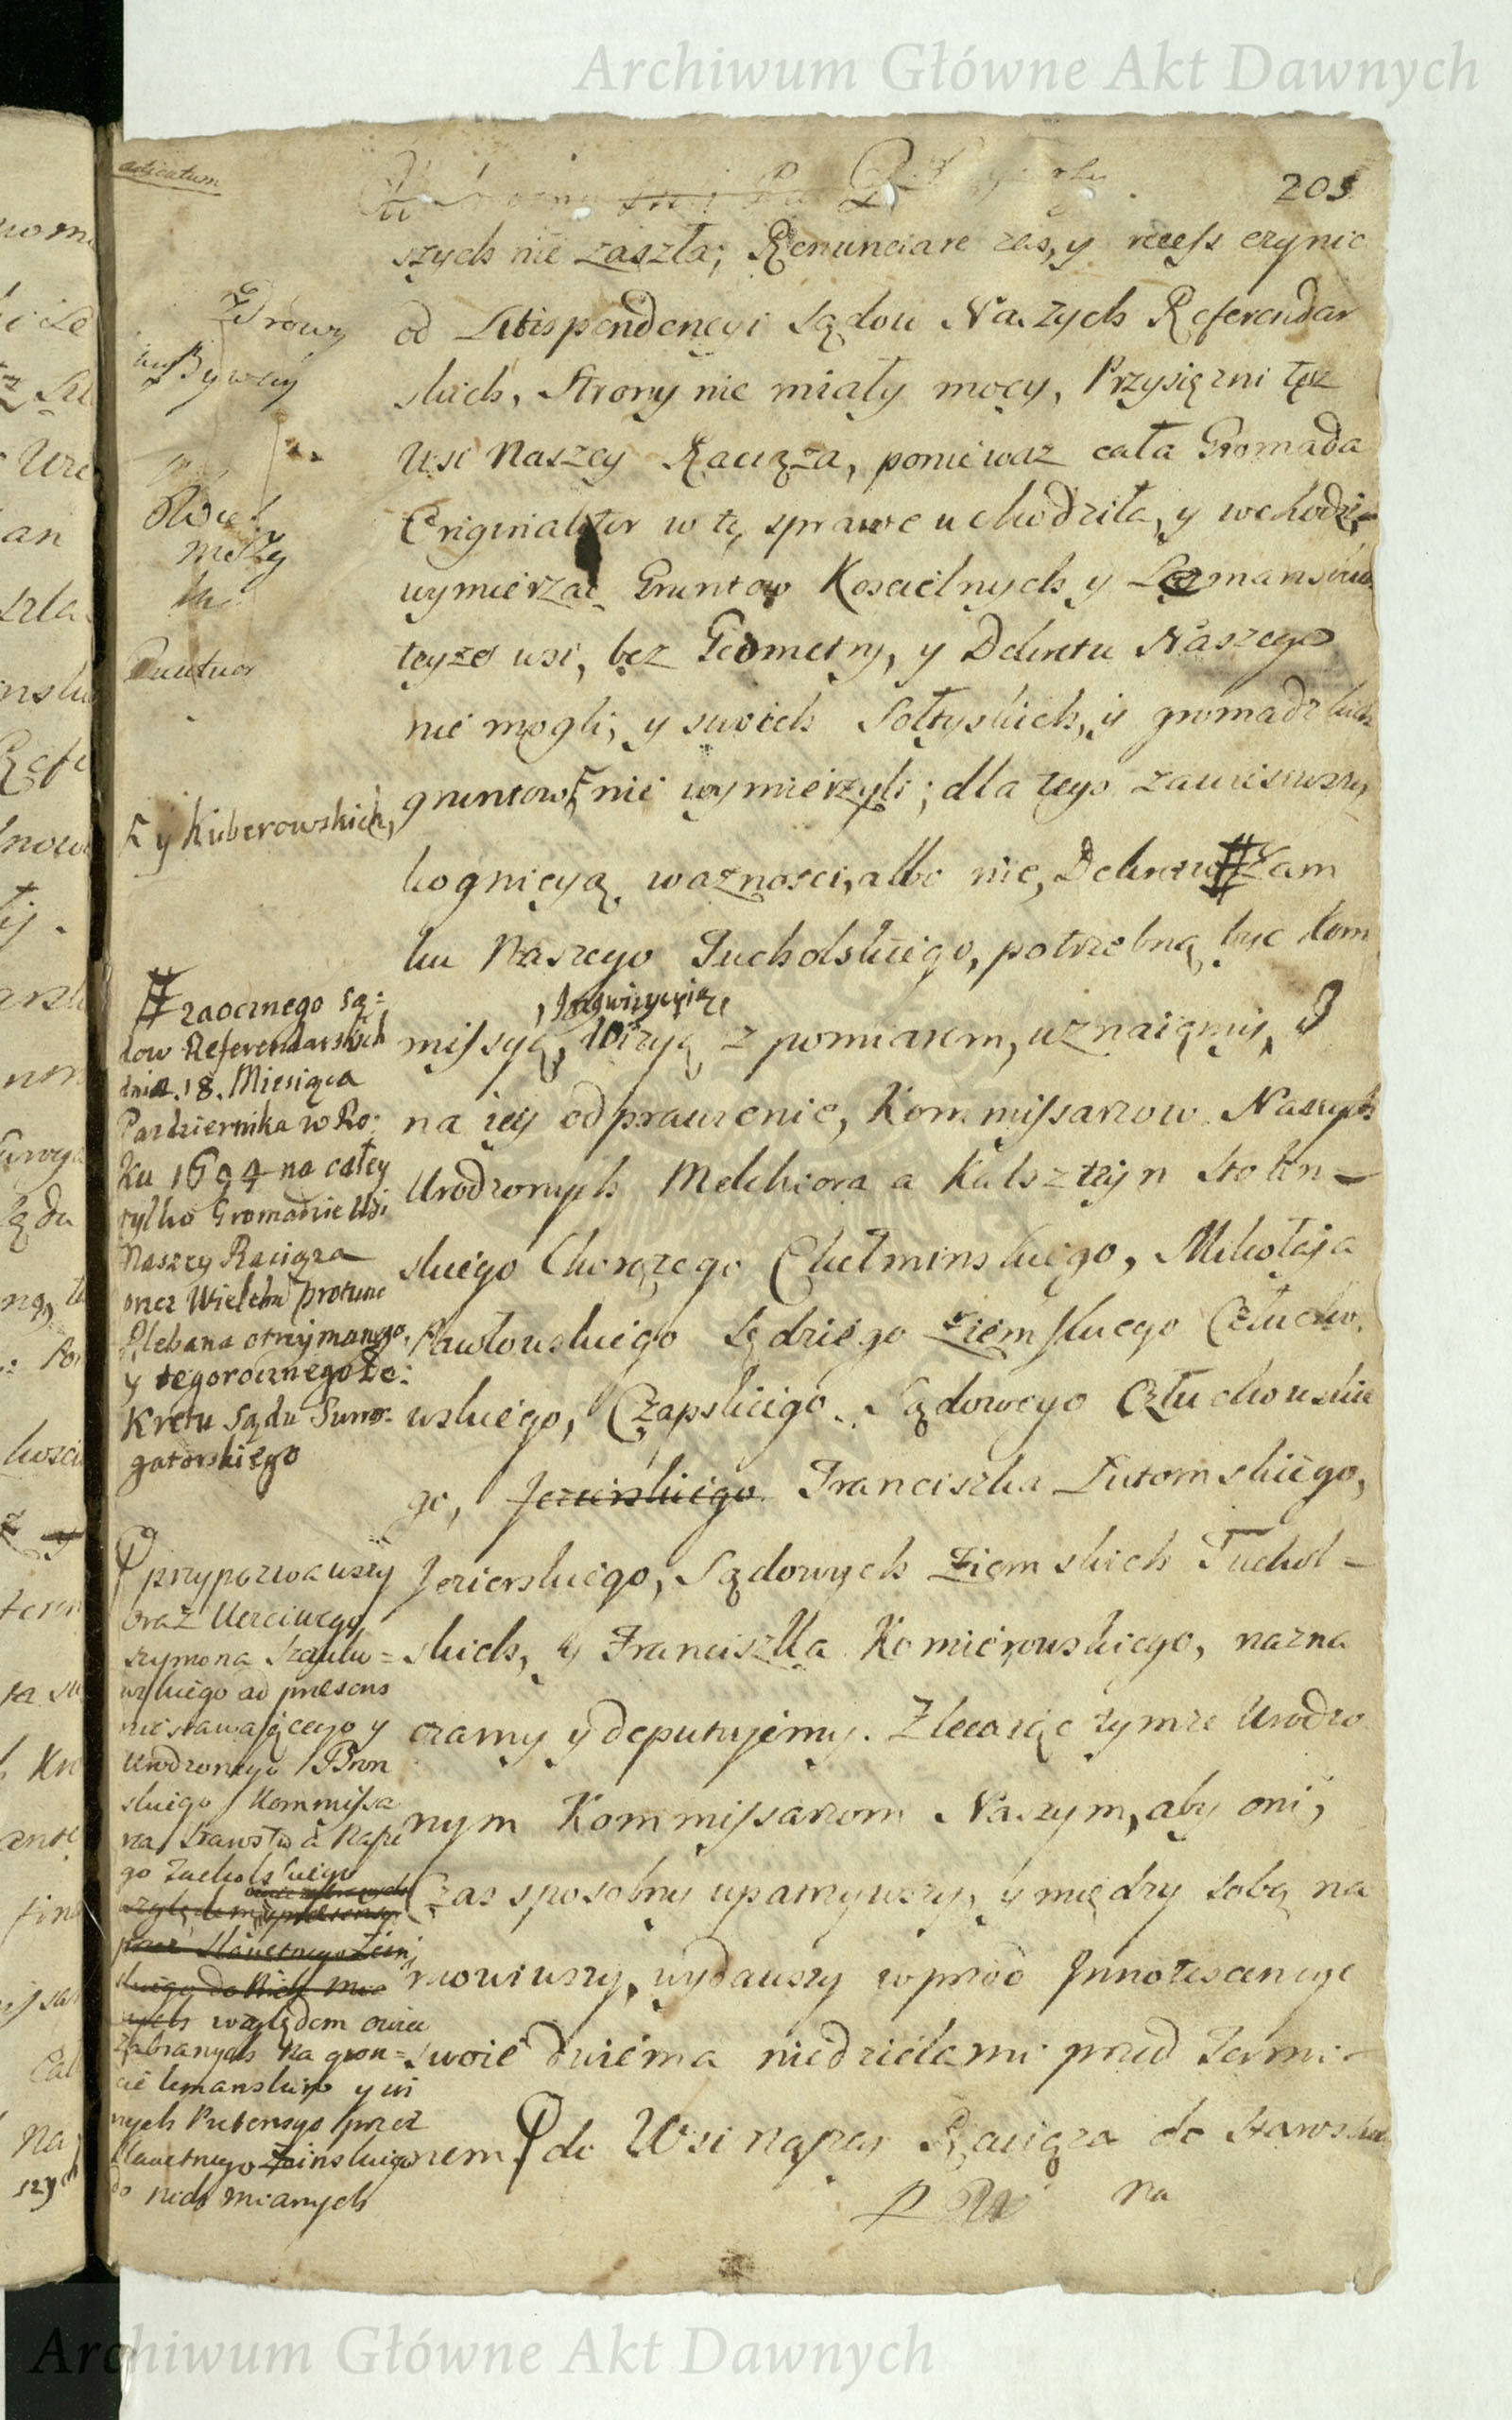 Archiwum Główne Akt Dawnych
203
szych nie zaszła; Renunciare zas, y recess czynic
od Litispendencyi Sądow Naszych Referendar
skich, Strony nie miały mocy, Przysięzni tez
Wsi Naszey Raciąża, poniewaz cała Gromada
Originaliter w tę sprawę uchodziła, y wchodzi,
wymierzac Gruntow Koscielnych y Lemanskich
teyze wsi, bez Geometry, y Dekretu Naszego
nie mogli; y swoich Sołtyskich, y gromadzkich
gruntow nie wymierzyli; dla tego zawiesiwszy
kognicyą waznosci, albo nie, Dekretu # Zam
ku Naszego Tucholskiego, potrzebną byc kom
missyą, Inquizycyie, Wizyą z pomiarem, uznaięmy,
na iey odprawienie, Kommissarzow Naszych
Urodzonych Melchiora a Kalszteyn Stolin-
skiego Chorązego Chełminskiego, Mikołaja
Pawłowskiego Sędziego Ziemskiego Człucho-
wskiego, Czapskiego Sądowego Człuchowskie
go, Jezierskiego Franciszka Lutomskiego,
Jezierskiego, Sądowych Ziemskich Tuchol-
skich, y Franciszka Komierowskiego, nazna
czamy y deputujemy. Zlecaiąc tymze Urodzo
nym Kommissarzom Naszym, aby oni,
Czas sposobny upatrzywszy, y między sobą na
mowiwszy, wydawszy wprzod Innotescencye
swoie dwiema niedzielami przed Termi-
nem do Wsi naszey Raciąza do Starostwa
na
Zdrowy
Bywszy
Y y Kuberowskich,
# zaocznego Są:
dow Referendarskich
dnia 18. Miesiąca
Pazdziernika w Ro:
ku 1694 na całey
tylko Gromadzie Wsi
Naszey Raciąza
przez Wielebn protunc
Plebana otrzymanego,
y tegorocznego De:
kretu Sądu Surro-
gatorskiego
przypozwawszy
oraz Uczciwego
Szymona
ad praesens
niestawaiącego y
Urodzonego Bron
skiego Kommissa
rza Starostwa Nasze
go Tucholskiego
względem owiec
zabranych na gron-
cie lemanskim y in
nych Pretensyo przez
Sławetnego Ziinskiego
do nich mianych
Archiwum Główne Akt Dawnych